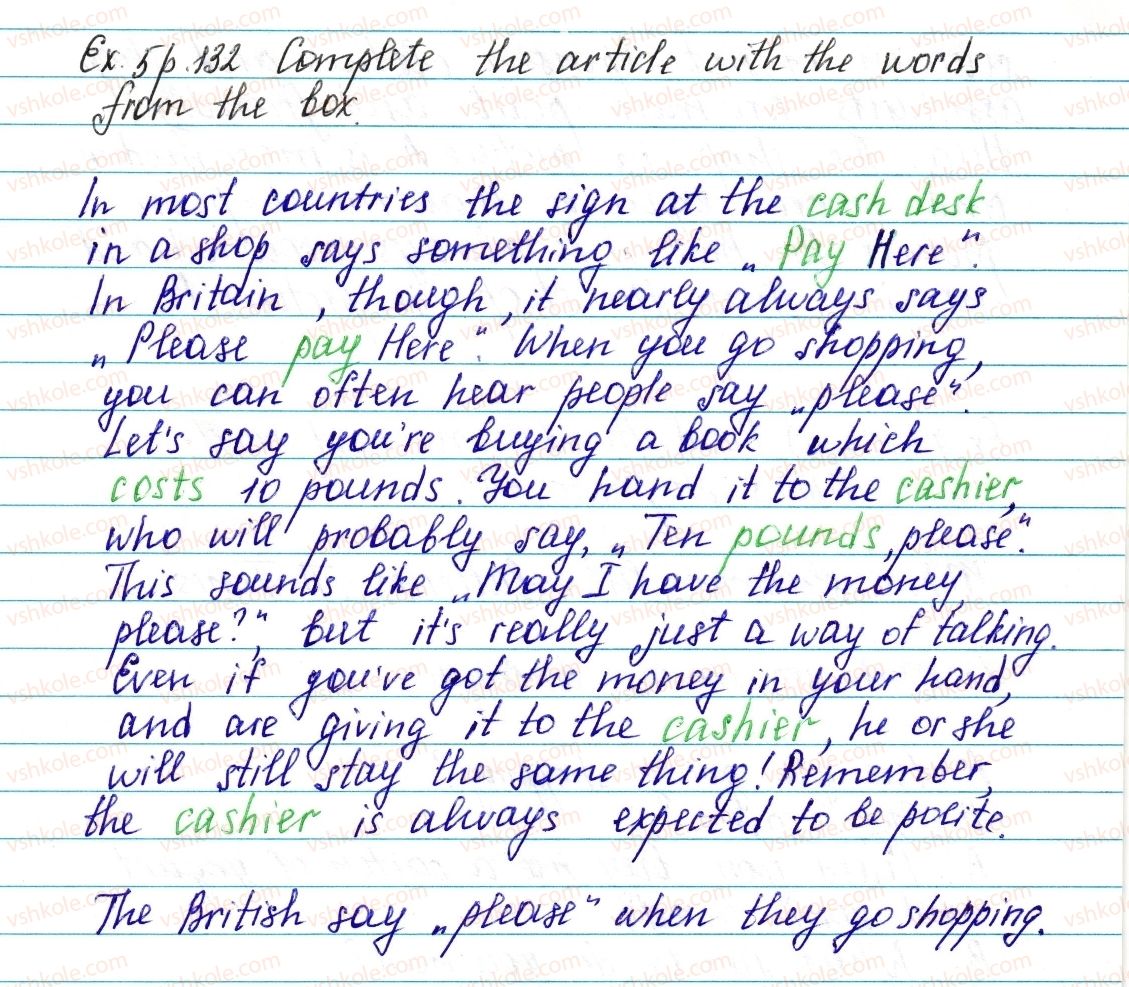 Ex. 5 p. 132 Complete the article with the words
from the box.
In most countries the sign at the cash desk
in a shop says something like „Pay Here".
In Britain, though, it nearly always says
„Please pay Here". When you go shopping,
you can often hear people say „please".
Let's say you're buying a book which
costs 10 pounds. You hand it to the cashier,
who will probably say, „Ten pounds, please".
This sounds like „May I have the money,
please?", but it's really just a way of talking.
Even if you've got the money in your hand,
and are giving it to the cashier, he or she
will still stay the same thing! Remember,
the cashier is always expected to be polite.
The British say „please" when they go shopping.